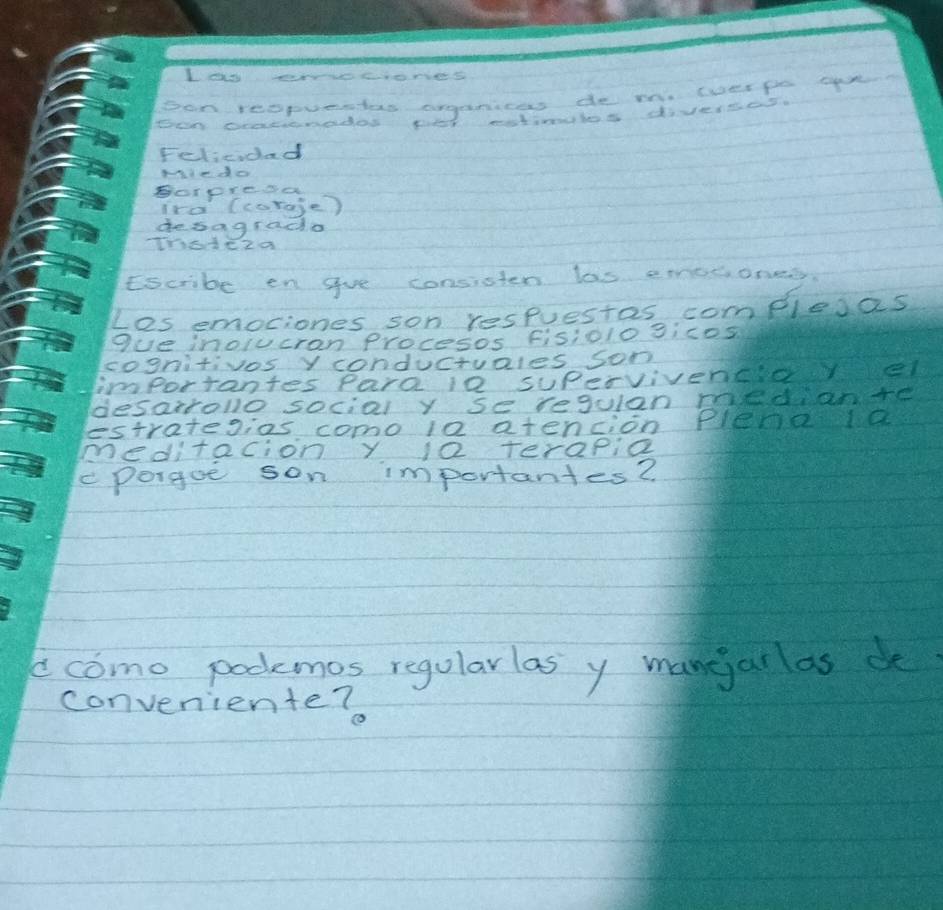 Las emociones
son respuestas organicas de mi cuerpo que
son ocacionados por estimulos diversos.
Felicidad
Miedo
Sorpresa
Ira (coraje)
desagrado
Tristeza
Escribe en que consisten las emociones.
Las emociones son respuestas complejas
que inolucran Procesos Fisiologicos
cognitivos y conductuales son
importantes Para la supervivencia y el
desarrollo social y se regulan mediante
estrategias como la atencion Plena la
meditacion y la terapia
¿porque son importantes?
¿cómo podemos regularlas y manejarlas de
conveniente?